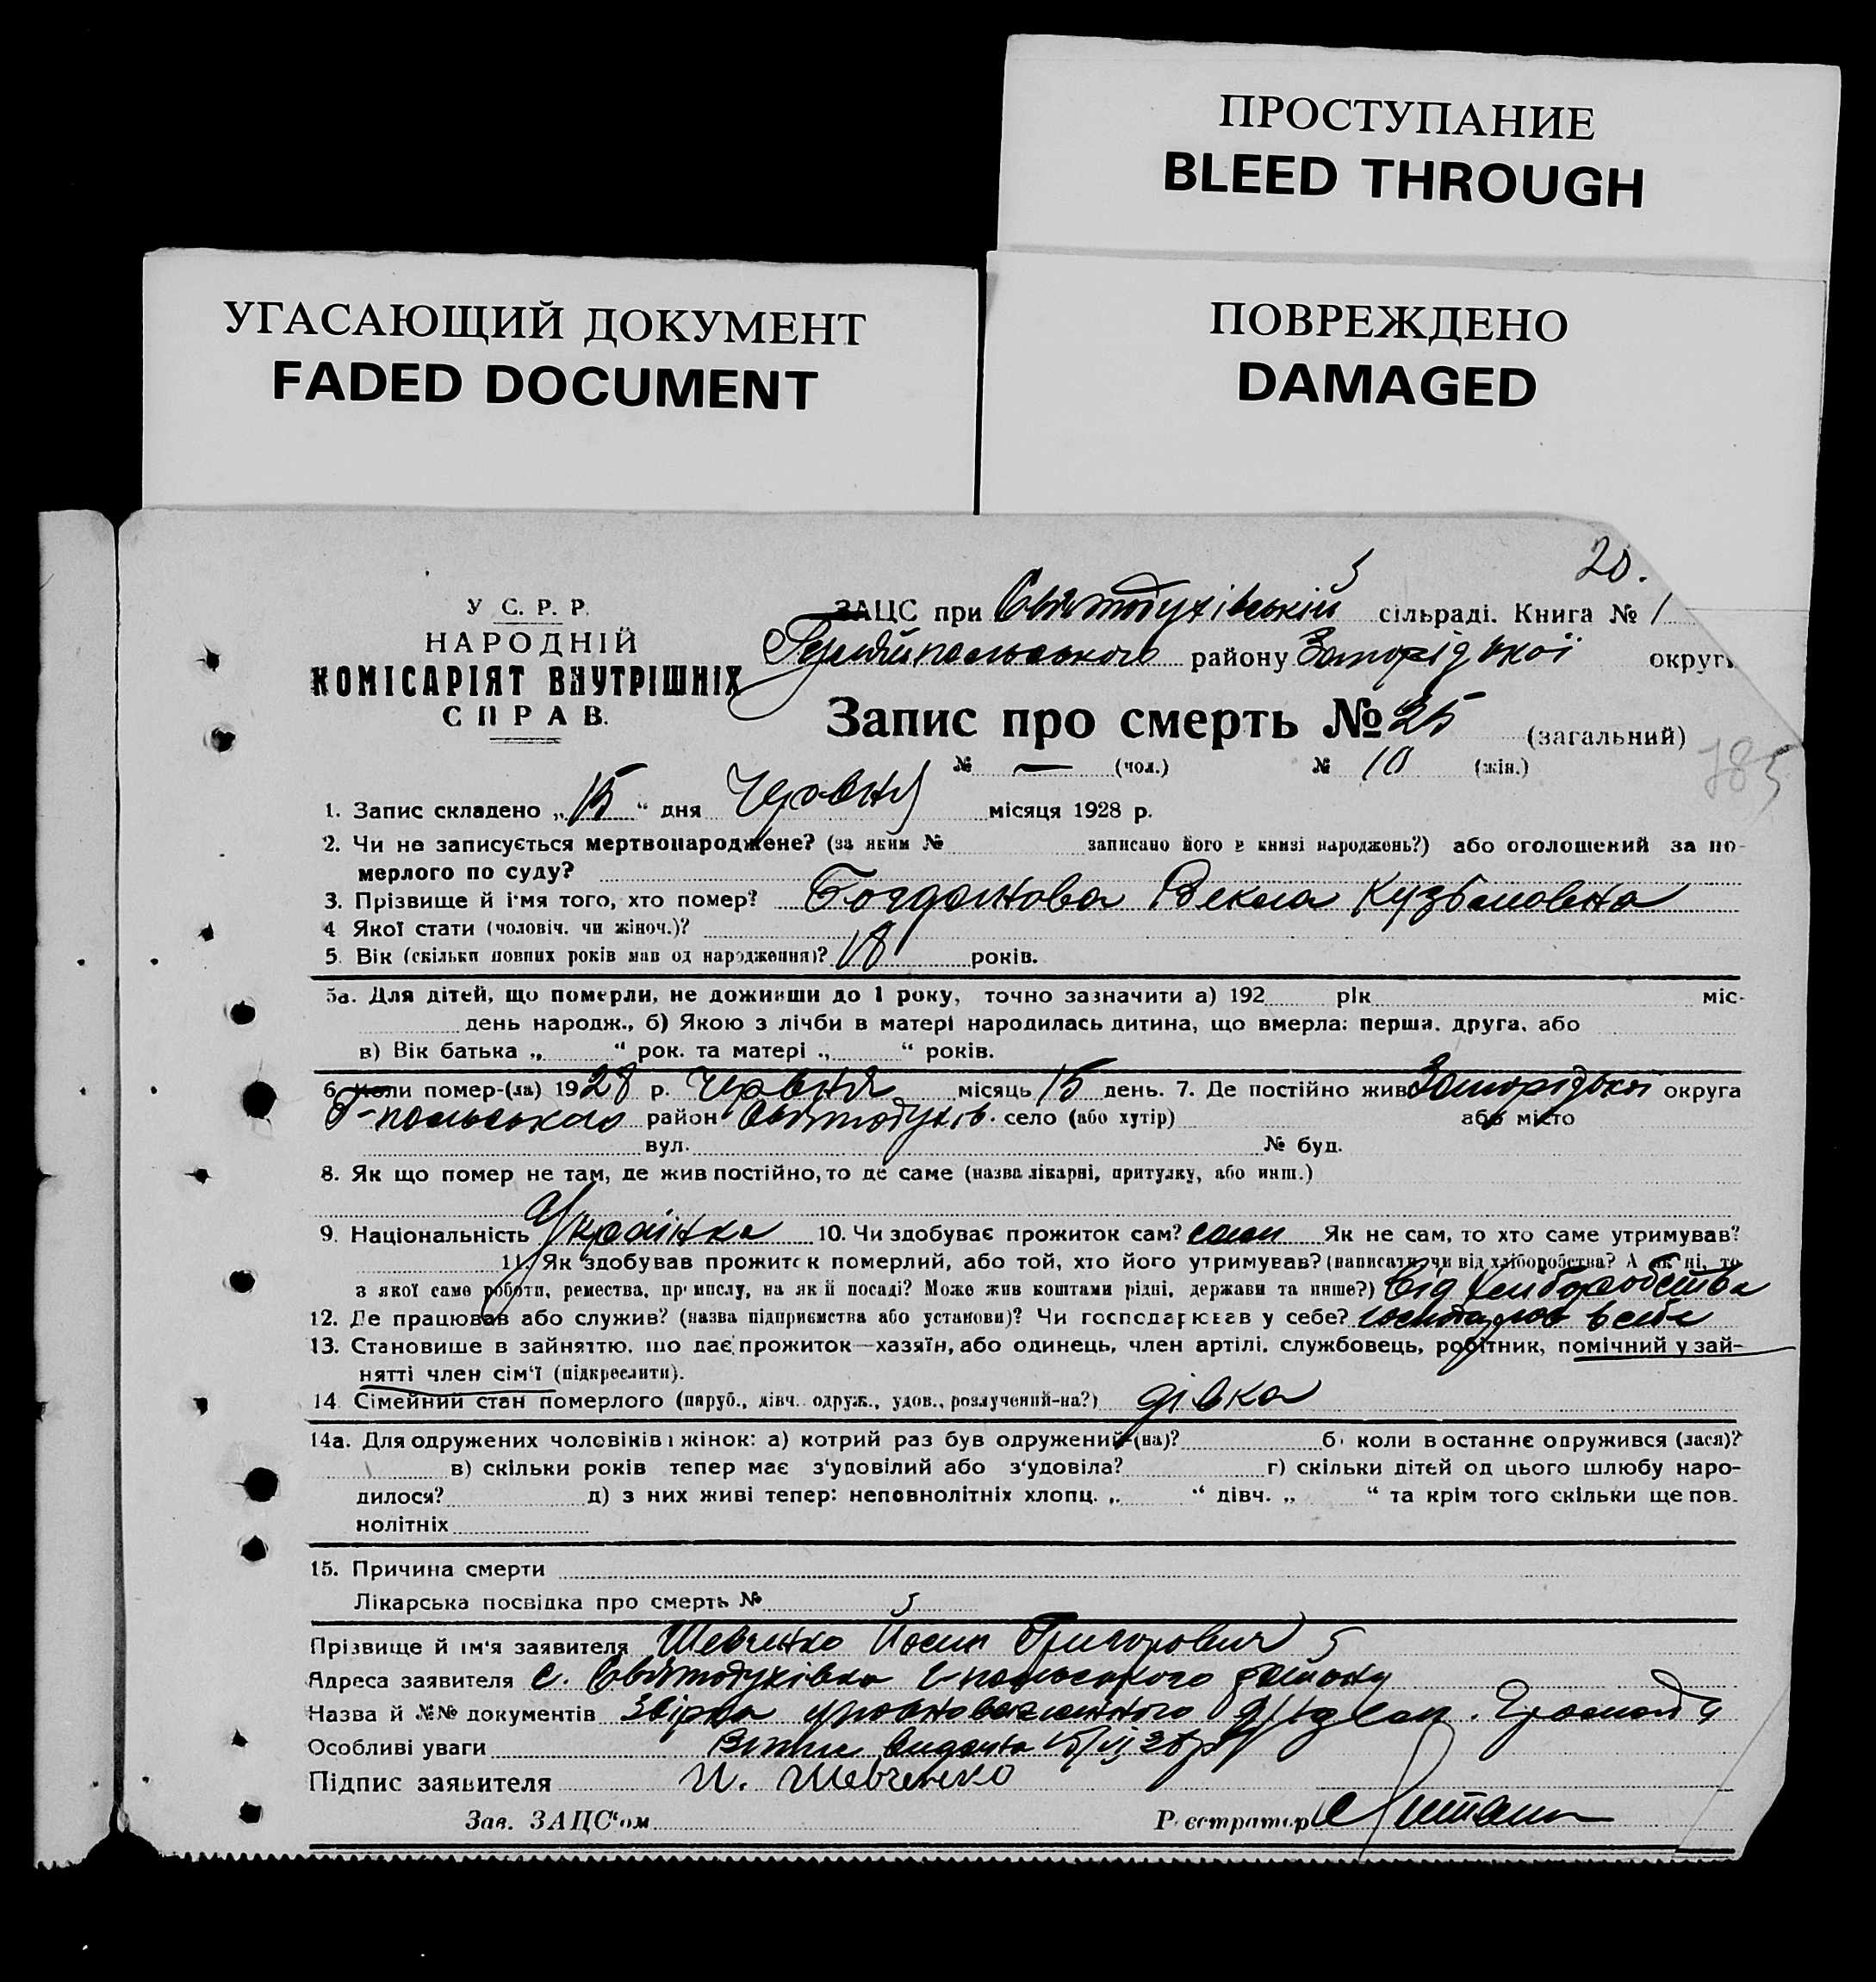 ПРОСТУПАНИЕ
BLEED THROUGH
УГАСАЮЩИЙ ДОКУМЕНТ
FADED DOCUMENT
ПОВРЕЖДЕНО
DAMAGED
20.
У С. Р. Р.
НАРОДНІЙ
КОМІСАРІЯТ ВНУТРІШНІХ
СПРАВ.
ЗАЦС при Святодухівській сільраді. Книга № 1
Гуляйпольського району Запорізької округи
Запис про смерть № 25 (загальний)
№ — (чол.) № 10 (жін.)
185
1. Запис складено „15“ дня Червня місяця 1928 р.
2. Чи не записується мертвонароджене? (за яким № записано його в книзі народжень?) або оголошений за по-
мерлого по суду?
3. Прізвище й ім'я того, хто помер? Богданова Векла Кузьмовна
4 Якої стати (чоловіч. чи жіноч.)?
5. Вік (скільки повних років мав од народження)? 18 років.
5а. Для дітей, що померли, не доживши до 1 року, точно зазначити а) 192 рік міс-
день народж., б) Якою з лічби в матері народилась дитина, що вмерла: перша, друга, або
в) Вік батька „ “ рок. та матері „ “ років.
6. Коли помер-(ла) 1928 р. Червня місяць 15 день. 7. Де постійно жив Запорізької округа
Г-польського район Святодухів. село (або хутір) або місто
вул. № буд.
8. Як що помер не там, де жив постійно, то де саме (назва лікарні, притулку, або инш.)
9. Національність Українка 10. Чи здобуває прожиток сам? сам Як не сам, то хто саме утримував?
11. Як здобував прожиток померлий, або той, хто його утримував? (написати, чи від хліборобства? А як ні, то
з якої саме роботи, ремества, промислу, на якій посаді? Може жив коштами рідні, держави та инше?) Від хліборобства
12. Де працював або служив? (назва підприємства або установи)? Чи господарював у себе? господарюв в себе
13. Становище в зайняттю, що дає прожиток—хазяїн, або одинець, член артілі, службовець, робітник, помічний у зай-
нятті член сім'ї (підкреслити).
14. Сімейний стан померлого (паруб., дівч. одруж., удов., розлучений-на?) дівка
14а. Для одружених чоловіків і жінок: а) котрий раз був одружений-(на)? б) коли востаннє одружився (лася)?
в) скільки років тепер має з'удовілий або з'удовіла? г) скільки дітей од цього шлюбу наро-
дилося? д) з них живі тепер: неповнолітніх хлопц. „ “ дівч. „ “ та крім того скільки ще пов-
нолітніх
15. Причина смерти
Лікарська посвідка про смерть №
Прізвище й ім'я заявителя Шевченко Йосип Григорович
Адреса заявителя с. Святодухівка Г-польського району
Назва й №№ документів
Особливі уваги видана
Підпис заявителя Й. Шевченко
Зав. ЗАЦС'ом Реєстратор